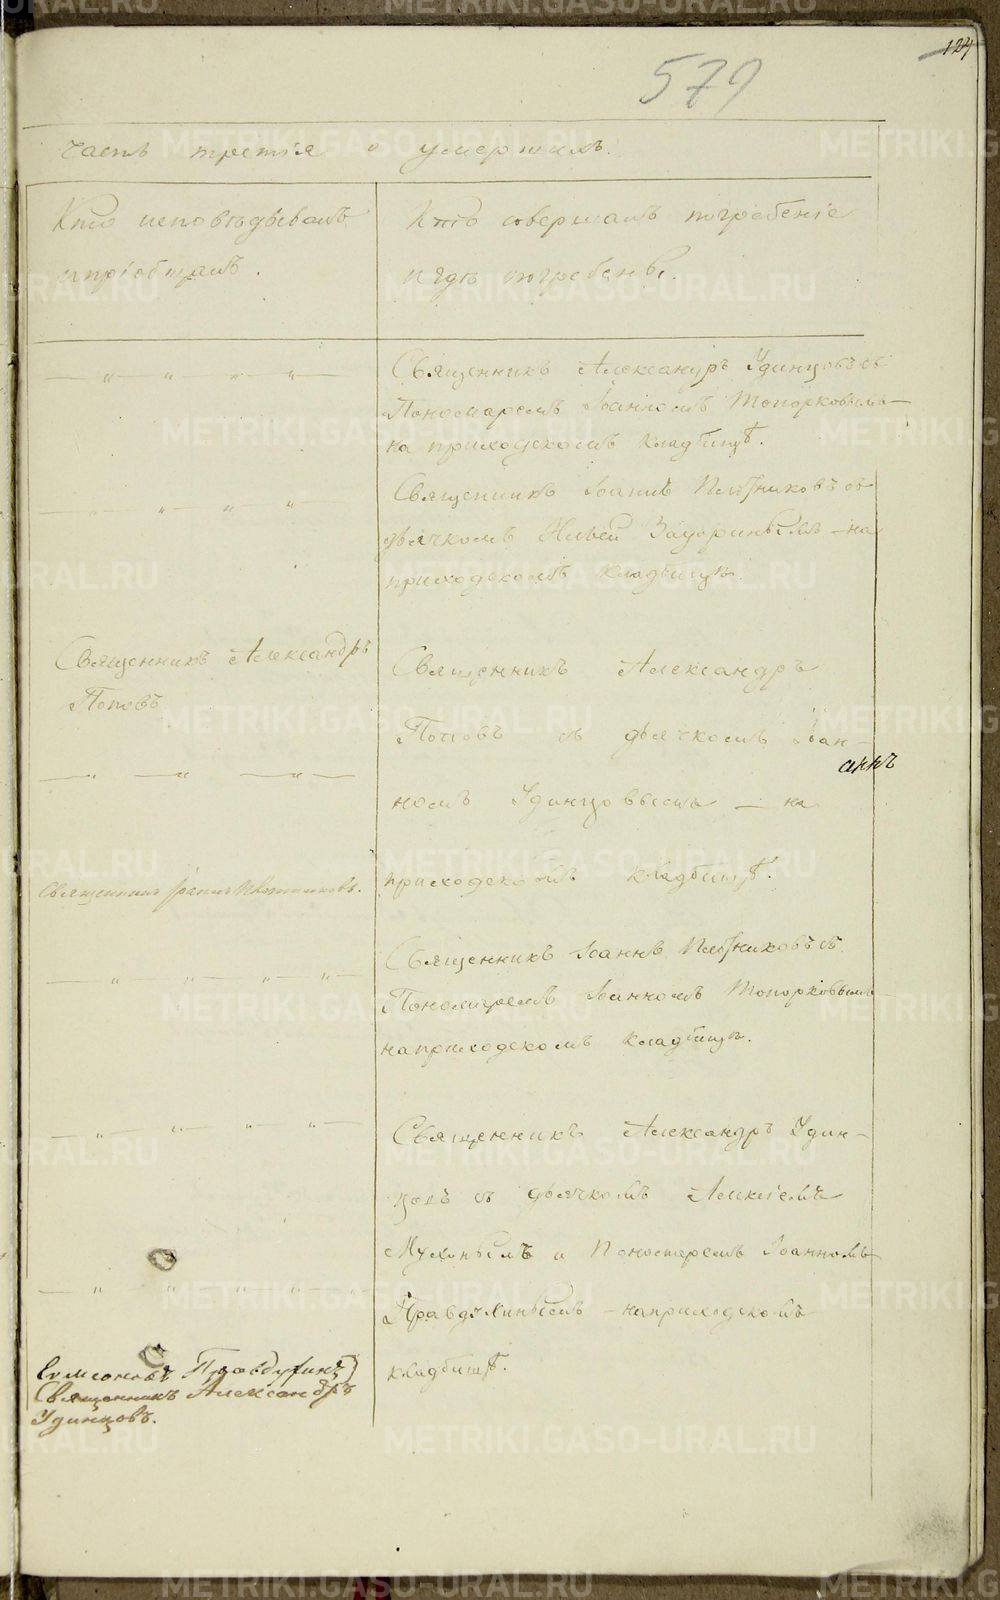 124
579
Часть третія о умершихъ.
Кто исповѣдывалъ
и пріобщалъ.
Кто совершалъ погребеніе
и гдѣ погребены.
Священникъ Александръ Удинцовъ съ
Пономаремъ Іоанномъ Топорковымъ
на приходскомъ кладбищѣ.
Священникъ Іоаннъ Плотниковъ съ
дьячкомъ на
приходскомъ кладбищѣ.
Священникъ Александръ
Поповъ
Священникъ Александръ
Поповъ съ дьячкомъ Іоан-
номъ Удинцовымъ — на
приходскомъ кладбищѣ.
Священникъ Іоаннъ Плотниковъ.
Священникъ Іоаннъ Плотниковъ съ
Пономаремъ Іоанномъ Топорковымъ
на приходскомъ кладбищѣ.
Священникъ Александръ Удин-
цовъ съ дьячкомъ Алексіемъ
и Пономаремъ Іоанномъ
Правдухинымъ — на приходскомъ
кладбищѣ.
Правдухинъ
Священникъ Александръ
Удинцовъ.
METRIKI.GASO-URAL.RU